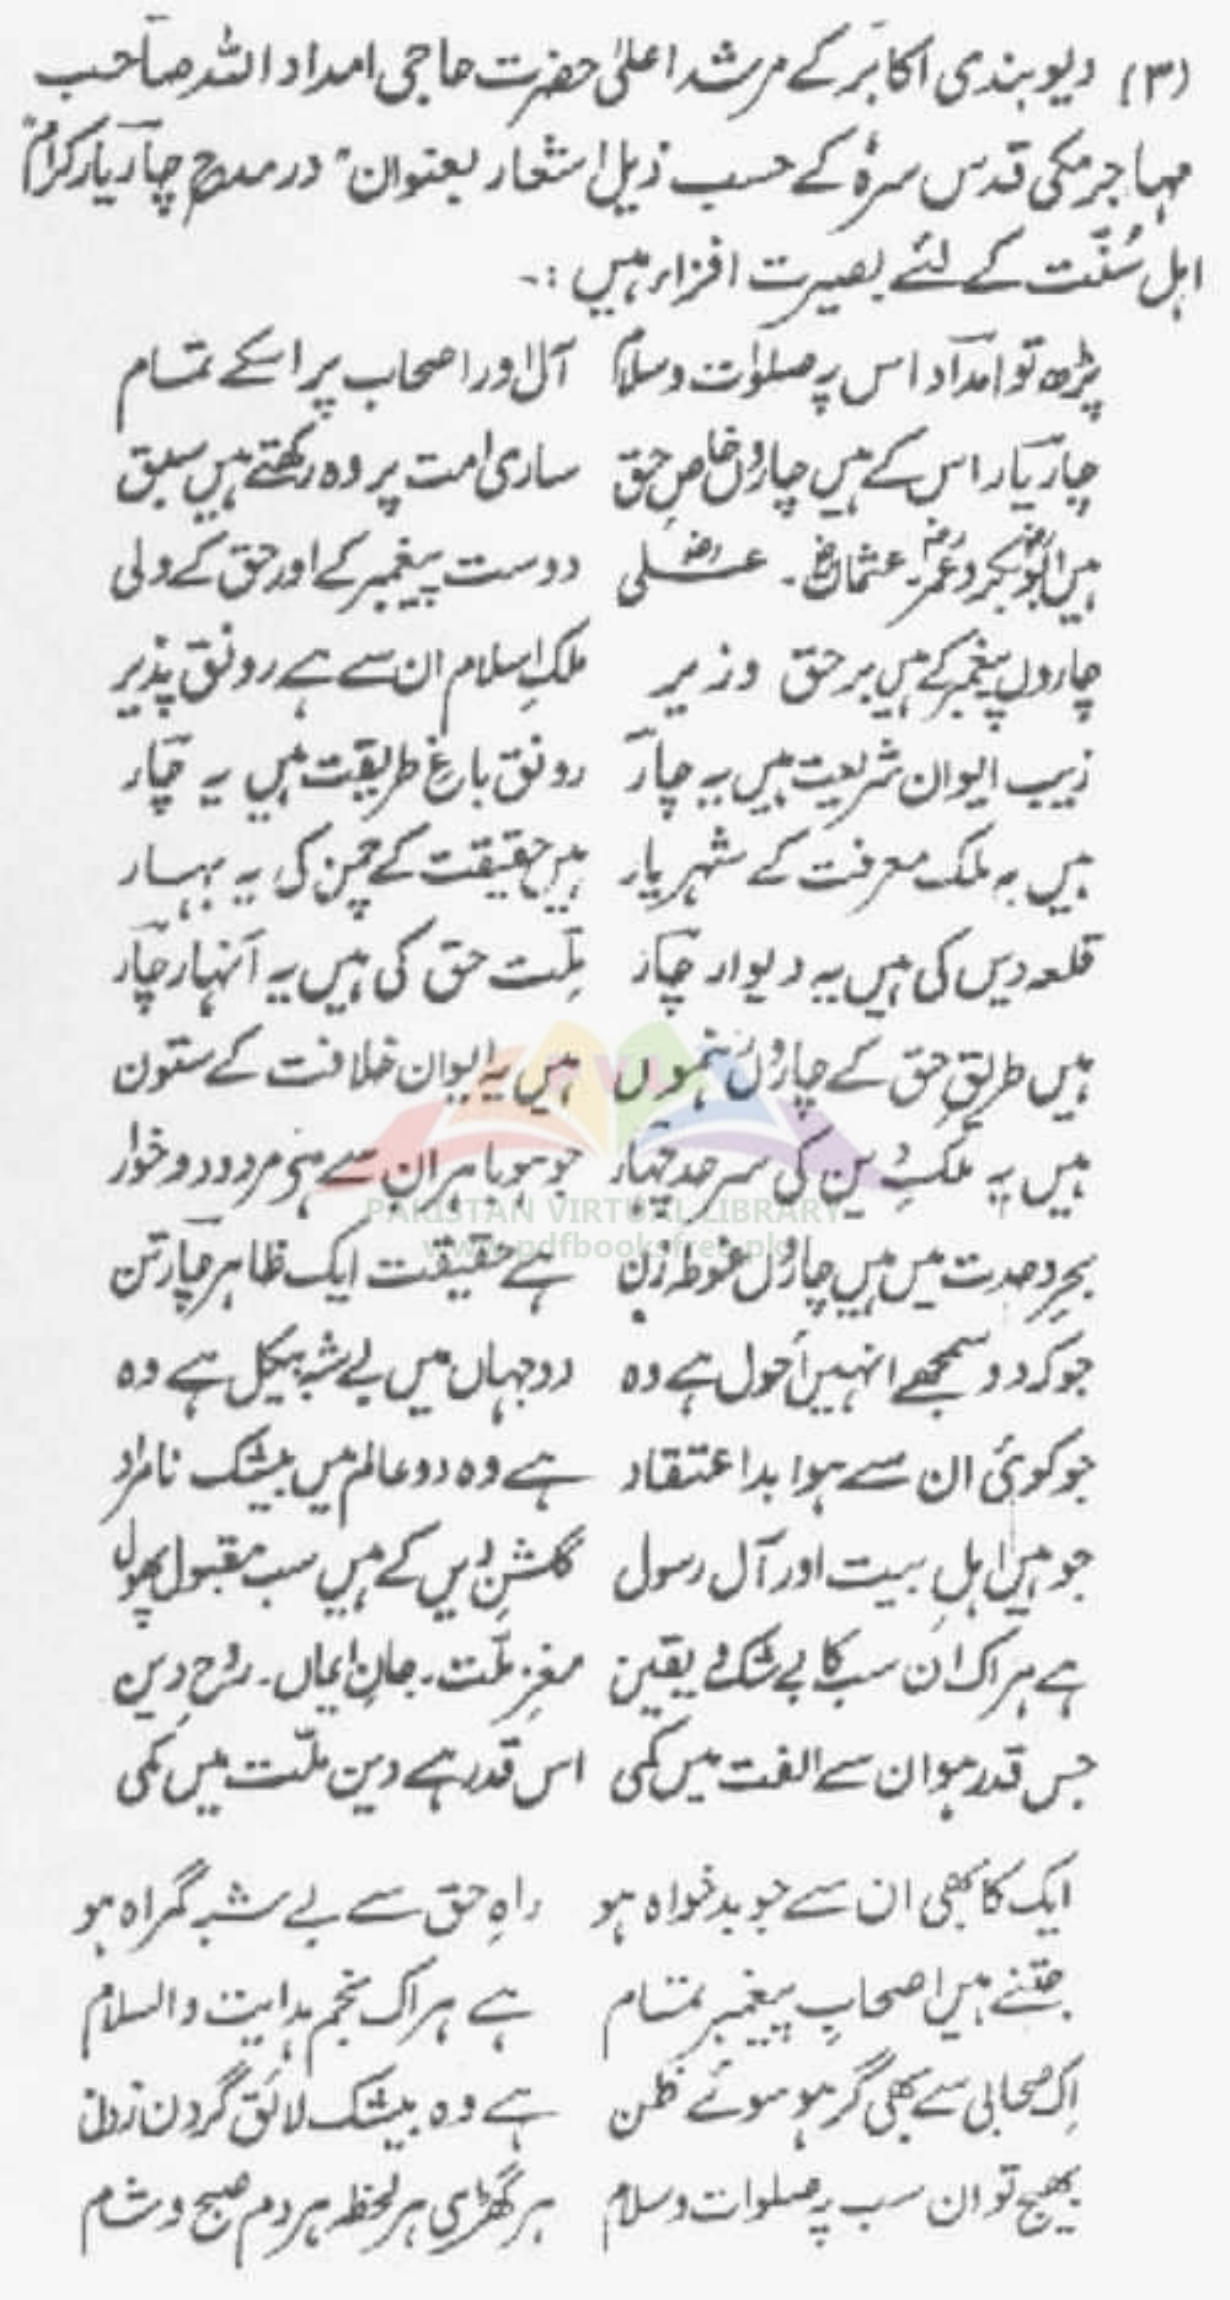 (۳) دیوبندی اکابر کے مرشد اعلیٰ حضرت حاجی امداد اللہ صاحب
مہاجر مکی قدس سرہٗ کے حسب ذیل اشعار بعنوان "در مدح چار یار کرام"
اہل سُنّت کے لئے بصیرت افزا ہیں :۔
پڑھ تو امداد اس پہ صلوٰت وسلام آل اور اصحاب پر اسکے تمام
چار یار اس کے ہیں چاروں خاص حق ساری امت پر وہ رکھتے ہیں سبق
ہیں ابوبکرؓ و عمرؓ ۔ عثمانؓ ۔ علیؓ دوست پیغمبر کے اور حق کے ولی
چاروں پیغمبر کے ہیں برحق وزیر ملکِ اسلام ان سے ہے رونق پذیر
زیب ایوان شریعت ہیں یہ چار رونق باغِ طریقت ہیں یہ چار
ہیں یہ ملک معرفت کے شہریار ہیں حقیقت کے چمن کی یہ بہار
قلعہ دیں کی ہیں یہ دیوار چار مِلّت حق کی ہیں یہ انہار چار
ہیں طریقِ حق کے چاروں رہنموں ہیں یہ ایوان خلافت کے ستون
ہیں یہ ملکِ دین کی سرحد چہار جو ہو باہر ان سے ہے مردود و خوار
بحرِ وحدت میں ہیں چاروں غوطہ زن ہے حقیقت ایک ظاہر چار تن
جو کہ دو سمجھے انہیں اَحول ہے وہ دو جہاں میں بے شبہ ہیکل ہے وہ
جو کوئی ان سے ہوا بد اعتقاد ہے وہ دو عالم میں بیشک نامراد
جو ہیں اہلِ بیت اور آل رسول گلشنِ دیں کے ہیں سب مقبول پھول
ہے ہر اک ان سب کا بے شک و یقین مغزِ ملّت ۔ جانِ ایماں ۔ روحِ دین
جس قدر ہو ان سے الفت میں کمی اس قدر ہے دین ملّت میں کمی
ایک کا بھی ان سے جو بدخواہ ہو راہِ حق سے بے شبہ گمراہ ہو
جتنے ہیں اصحابِ پیغمبر تمام ہے ہر اک نجم ہدایت والسلام
اِک صحابی سے بھی گر ہو سوئے ظن ہے وہ بیشک لائق گردن زدن
بھیج تو ان سب پہ صلوات وسلام ہر گھڑی ہر لحظہ ہر دم صبح و شام
PAKISTAN VIRTUAL LIBRARY
www.pdfbooksfree.pk